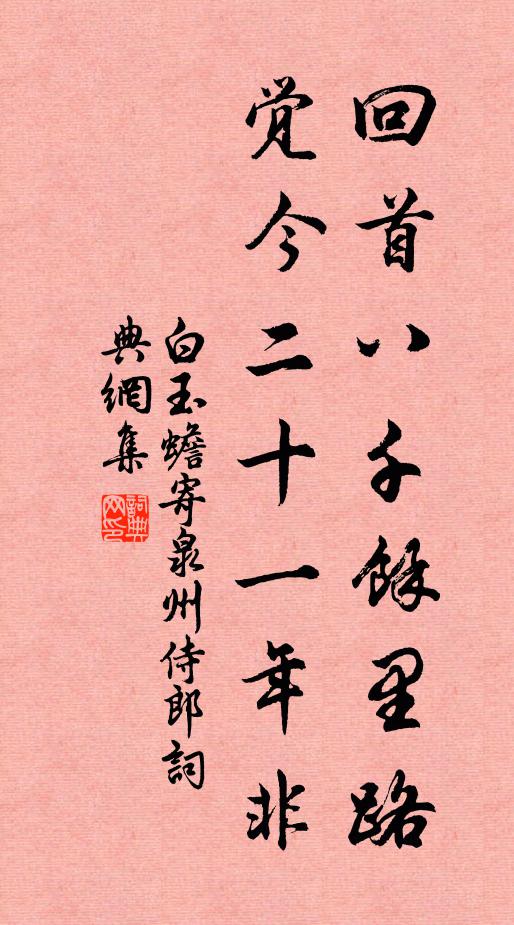 回首八千餘里路
覚今二十一年非
白玉蟾寄泉州侍郎詞
典網集
詞典网印